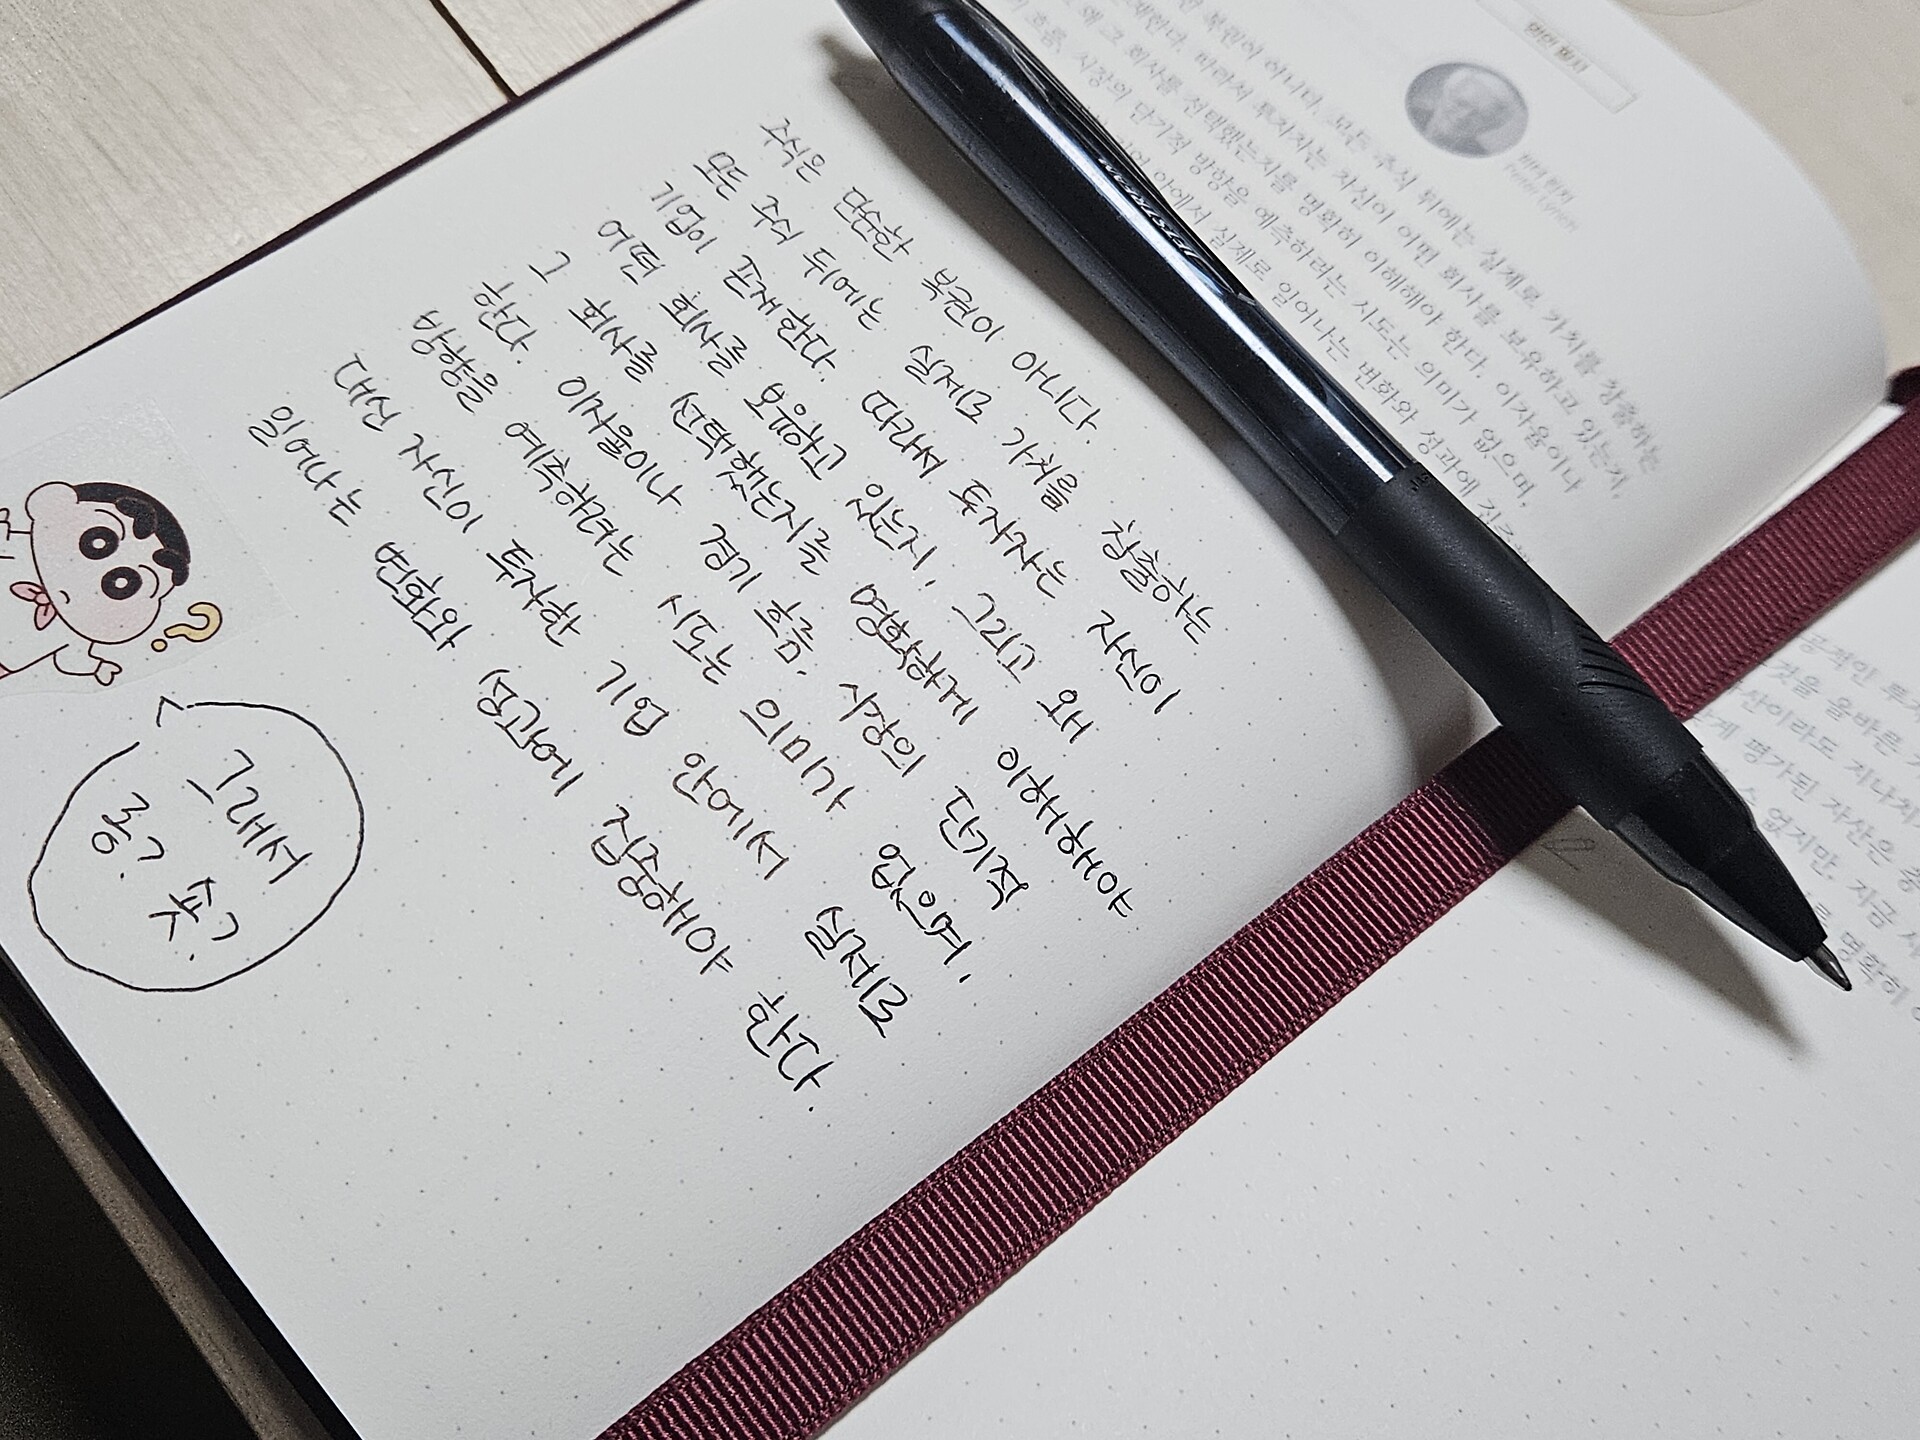 주식은 단순한 복권이 아니다.
모든 주식 뒤에는 실제로 가치를 창출하는
기업이 존재한다. 따라서 투자자는 자신이
어떤 회사를 보유하고 있는지, 그리고 왜
그 회사를 선택했는지를 명확하게 이해해야
한다. 이자율이나 경기 흐름, 시장의 단기적
방향을 예측하려는 시도는 의미가 없으며,
대신 자신이 투자한 기업 안에서 실제로
일어나는 변화와 성과에 집중해야 한다.
?
그래서
롱? 숏?
JETSTREAM
피터 린치
Peter Lynch
복권이 아니다. 모든 주식 뒤에는 실제로 가치를 창출하는
존재한다. 따라서 투자자는 자신이 어떤 회사를 보유하고 있는지,
왜 그 회사를 선택했는지를 명확히 이해해야 한다. 이자율이나
흐름, 시장의 단기적 방향을 예측하려는 시도는 의미가 없으며,
안에서 실제로 일어나는 변화와 성과에
것을 올바른
자산이라도 지나치게
평가된 자산은
없지만, 지금
명확히